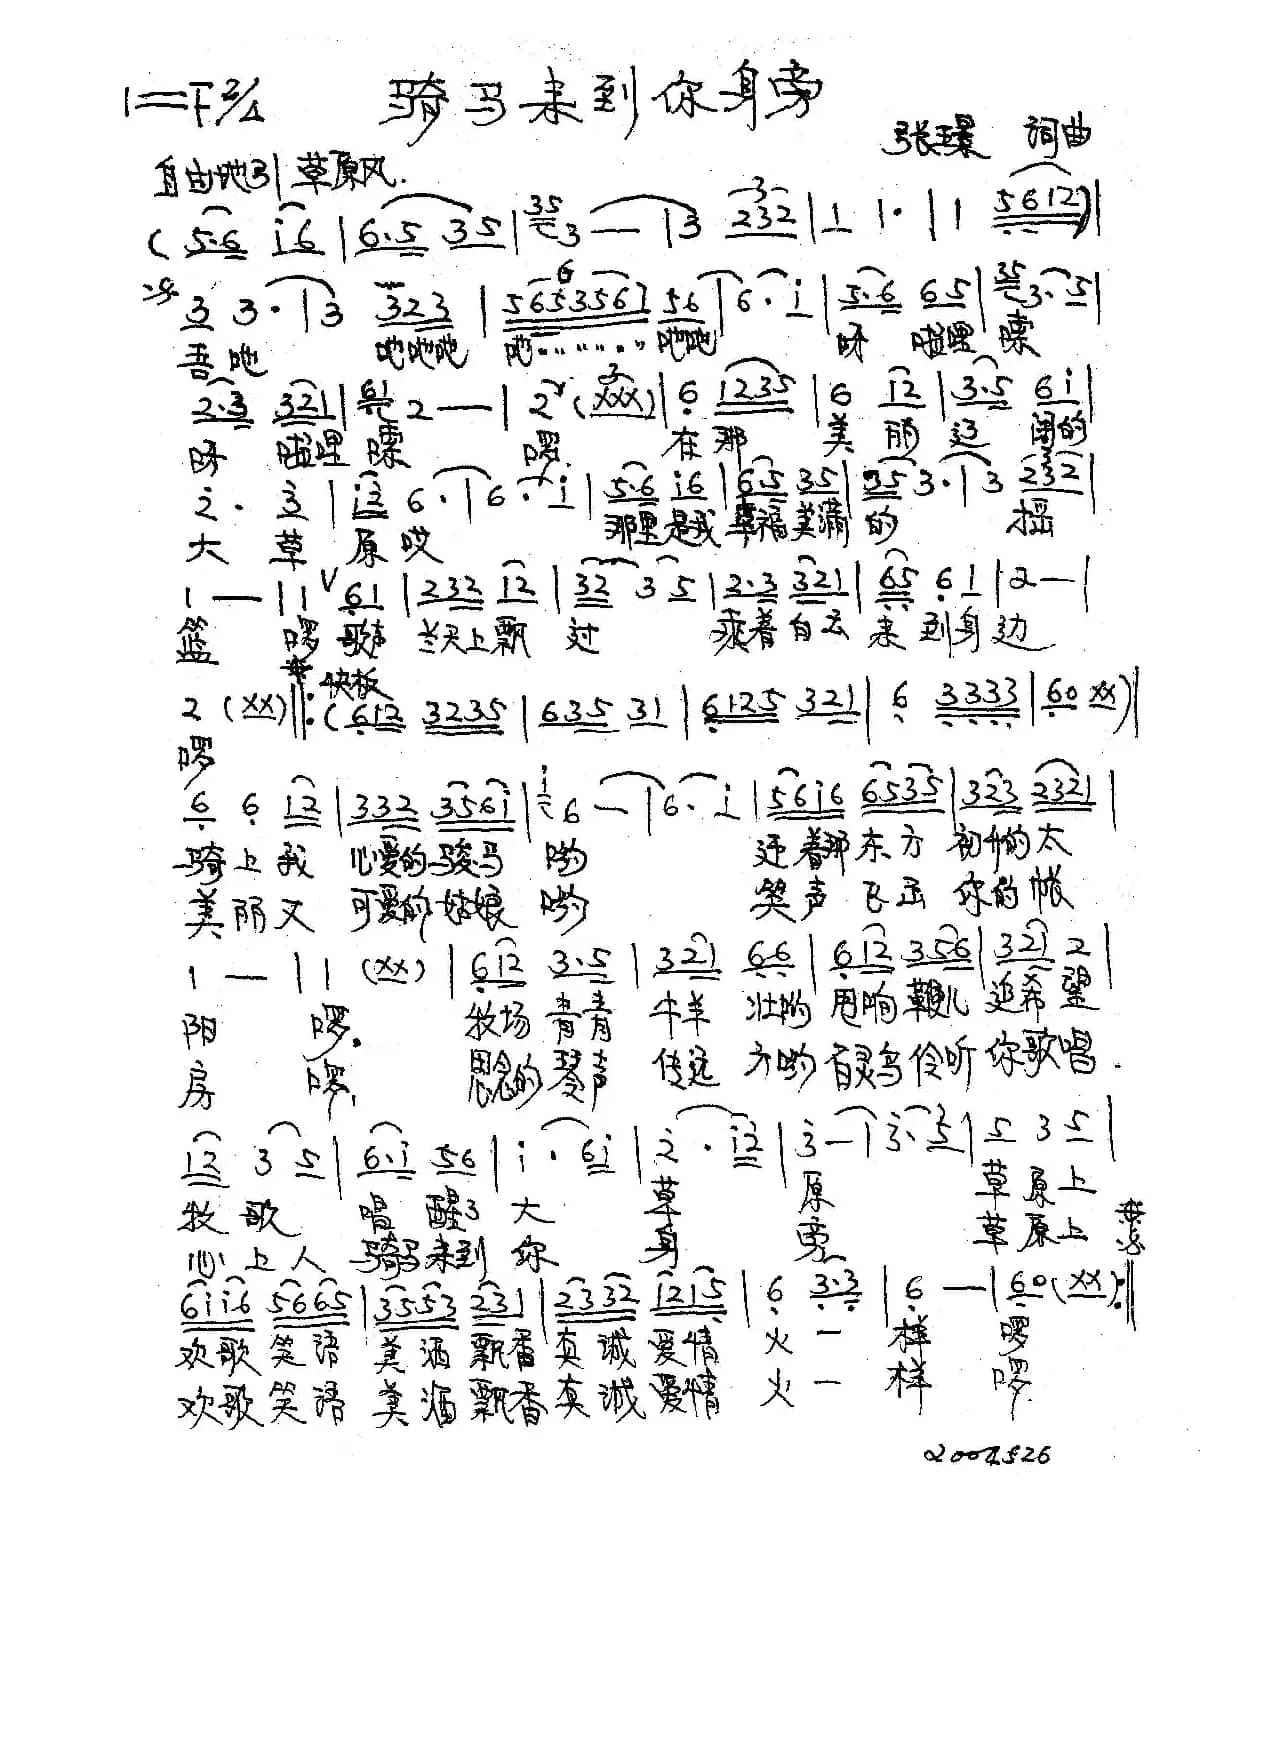 1=F 2/4 骑马来到你身旁
张璟 词曲
自由地 引 草原风.
(5·6 i6 | 6·5 35 | 35 3 — | 3 232 | 1 1· | 1 5612) |
3 3· | 3 323 | 5653561 56 | 6· i | 5·6 65 | 35 3·5 |
吾吔 吔吔吔 吔〃〃〃〃 吔吔 呀 啦哩 嗦
2·3 321 | 61 2 — | 2 (XXX) | 6 1235 | 6 i2 | 3·5 6i |
呀 啦哩 嗦 啰. 在那 美丽 辽阔的
2· 3 | i2 6· | 6· i | 5·6 i6 | 65 35 | 35 3· | 3 232 |
大草原哎 那里是我 幸福美满的 摇
1 — | 1 V 61 | 232 12 | 32 3 5 | 3·3 321 | 65 6 1 | 2 — |
篮 啰 歌声 兰天上飘 过 乘着白云 来到身边.
快板
2 (XX) ‖: (612 3235 | 635 31 | 6125 321 | 6 3333 | 60 XX) |
啰
6 6 12 | 332 356i | i 6 — | 6· i | 56i6 6535 | 323 2321 |
骑上我 心爱的骏马 哟 迎着那东方 初升的太
美丽又 可爱的姑娘 哟 笑声飞出 你的帐
1 — | 1 (XX) | 612 3·5 | 321 66 | 612 356 | 321 2 |
阳 啰. 牧场青青 牛羊 壮哟 甩响鞭儿 追希望
房 啰, 思念的琴声 传远方哟 百灵鸟伶听 你歌唱.
12 3 5 | 6·i 56 | i· 6i | 2· i2 | 3 — | 3·5 | 5 3 5 |
牧歌 唱醒了 大 草 原 草原上
心上人 骑马来到 你 身 旁 草原上
6ii6 5665 | 3553 231 | 2332 1215 | 6 3·3 | 6 — | 60 (XX) :‖
欢歌笑语 美酒飘香 真诚爱情 火一样 啰
欢歌笑语 美酒飘香 真诚爱情 火一样 啰.